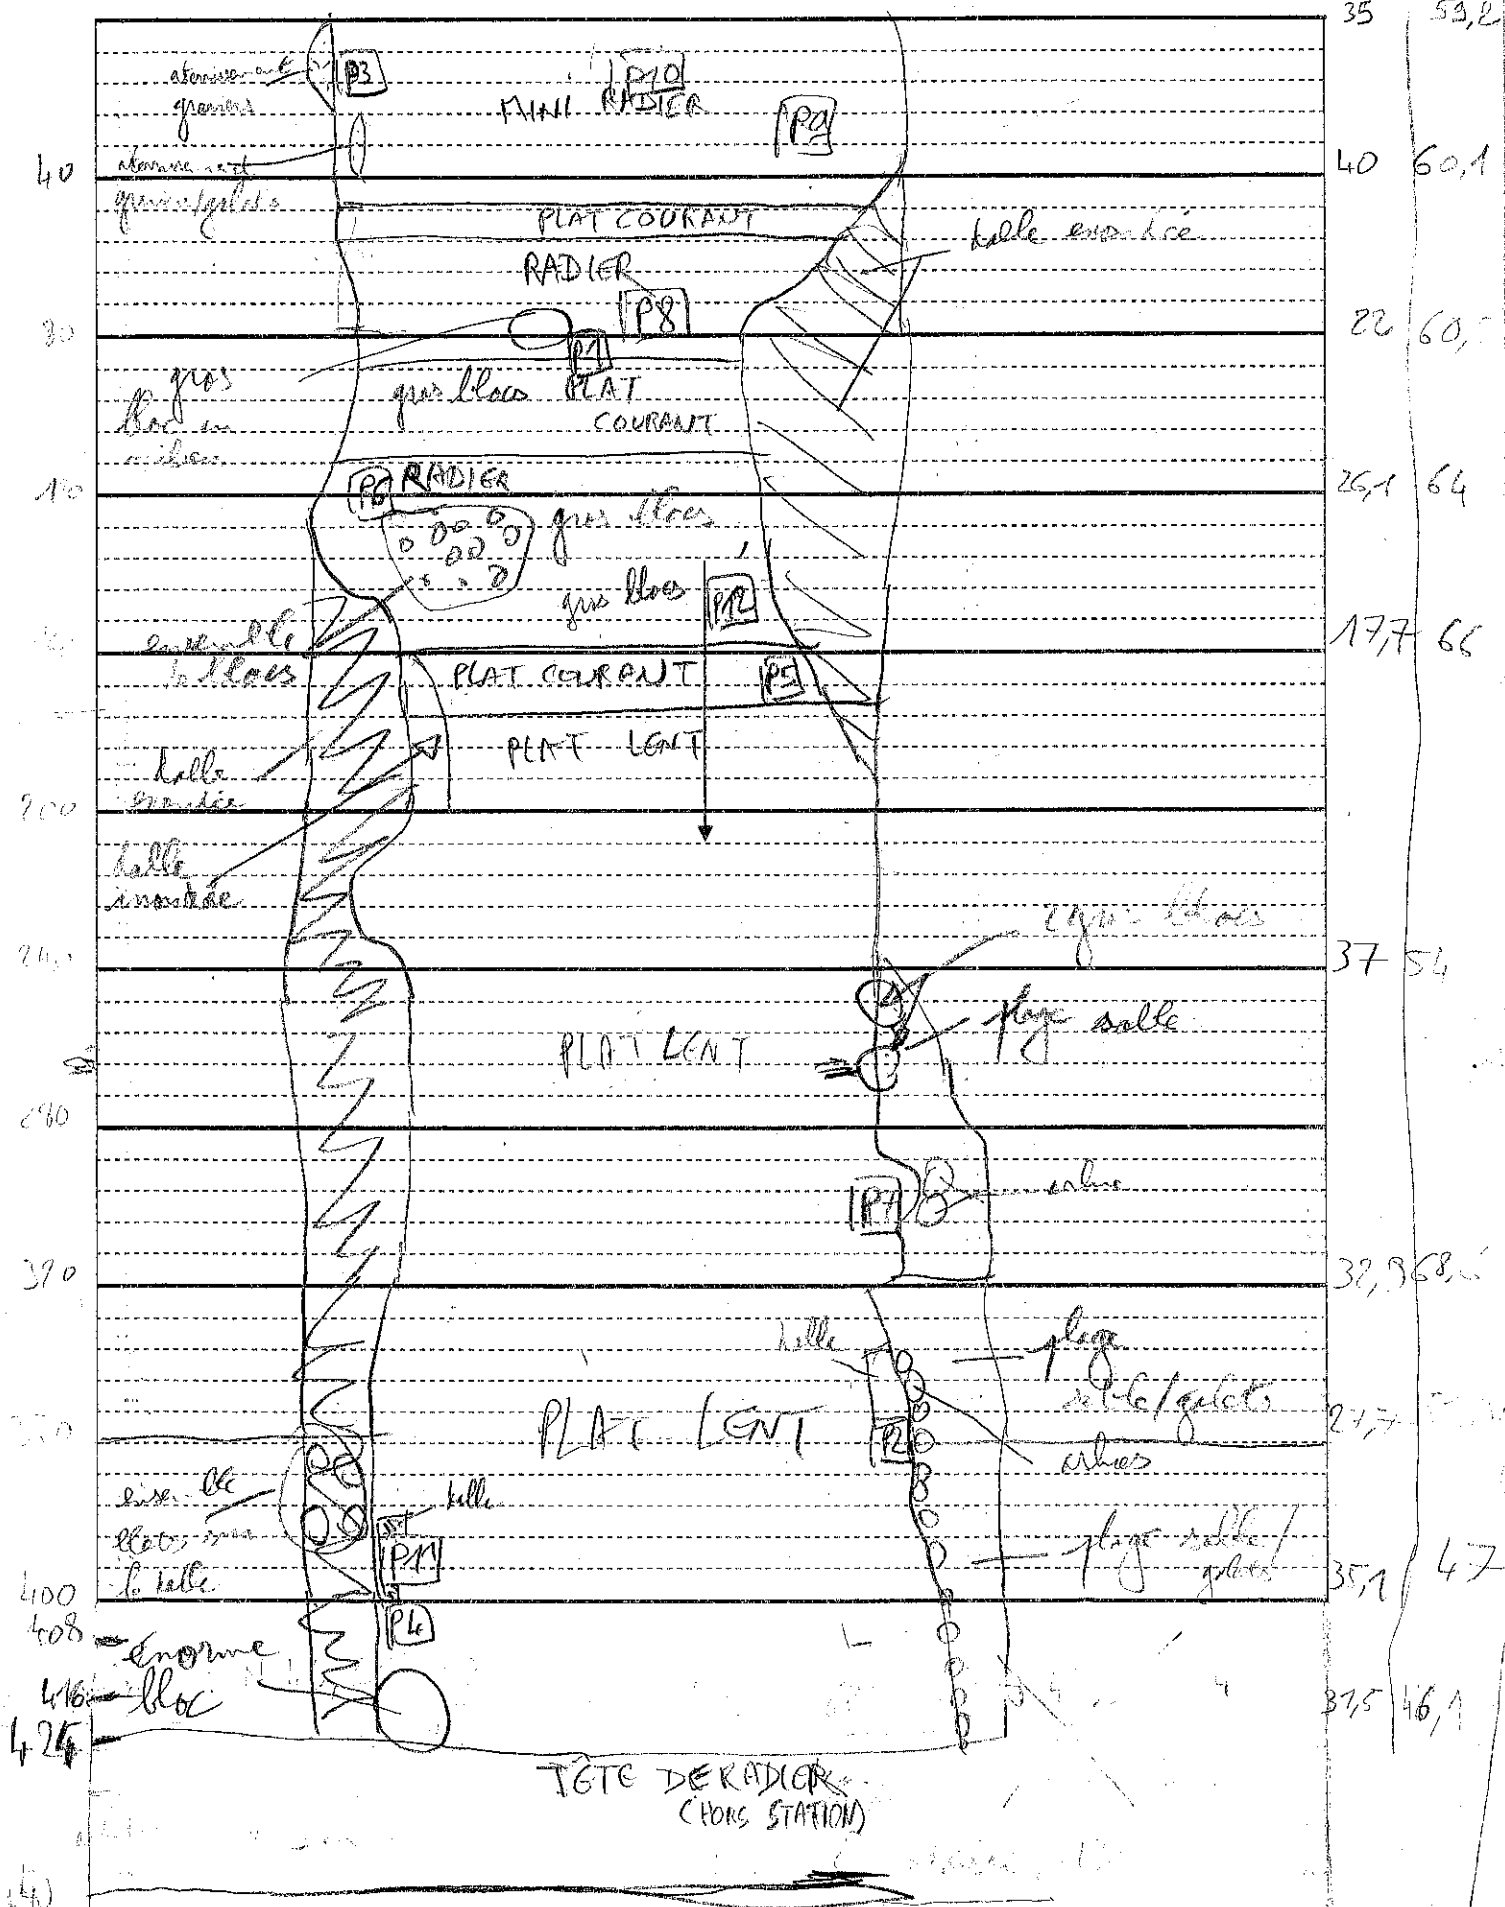 35 59,2
P3
P10
graviers
MINI RADIER
P9
40
40 60,1
PLAT COURANT
dalle exondée
RADIER
P8
80
22 60,
P1
gros
bloc au
milieu
gros blocs PLAT
COURANT
P6 RADIER
26,1 64
gros blocs
gros blocs
P12
ensemble
blocs
17,7 66
PLAT COURANT
P5
PLAT LENT
dalle
exondée
200
dalle
inondée
gros blocs
240
37 54
plage sable
PLAT LENT
280
P7
arbre
320
32,9 68,
dalle
plage
sable/galets
PLAT LENT
P2
27,7
arbres
ensemble
blocs sur
la dalle
dalle
P11
plage sable/
galets
400
35,1 47
P4
408
énorme
bloc
416
31,5 46,1
424
TÊTE DE RADIER
(HORS STATION)